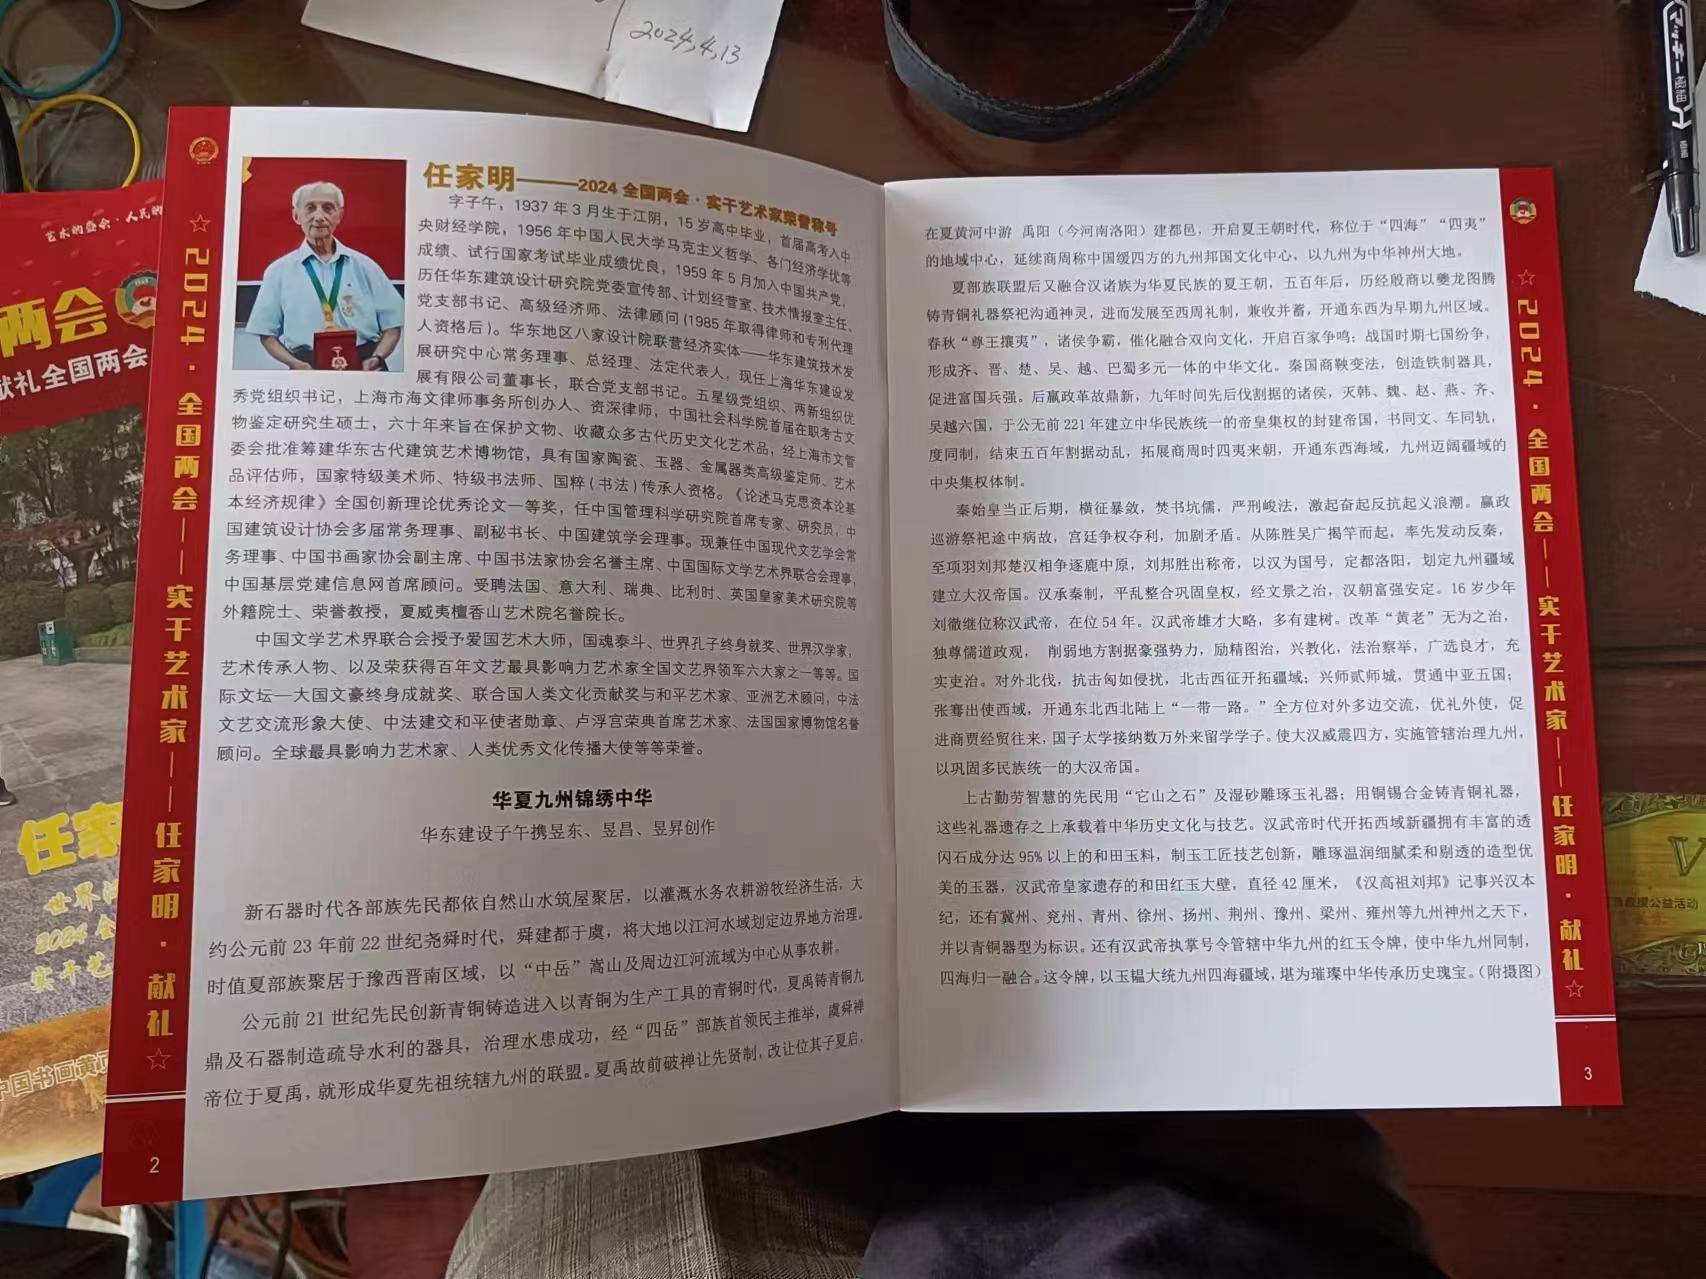 2024,4,13
艺术的盛会·人民的
两会
献礼全国两会
任家
世界
2024全
实干艺
中国书画黄页
2024·全国两会——实干艺术家——任家明·献礼
任家明——2024全国两会·实干艺术家荣誉称号
字子午，1937年3月生于江阴，15岁高中毕业，首届高考入中
央财经学院，1956年中国人民大学马克主义哲学、各门经济学优等
成绩、试行国家考试毕业成绩优良，1959年5月加入中国共产党，
历任华东建筑设计研究院党委宣传部、计划经营室、技术情报室主任、
党支部书记、高级经济师、法律顾问(1985年取得律师和专利代理
人资格后)。华东地区八家设计院联营经济实体——华东建筑技术发
展研究中心常务理事、总经理、法定代表人，现任上海华东建设发
展有限公司董事长，联合党支部书记。五星级党组织、两新组织优
秀党组织书记，上海市海文律师事务所创办人、资深律师，中国社会科学院首届在职考古文
物鉴定研究生硕士，六十年来旨在保护文物、收藏众多古代历史文化艺术品，经上海市文管
委会批准筹建华东古代建筑艺术博物馆，具有国家陶瓷、玉器、金属器类高级鉴定师、艺术
品评估师，国家特级美术师、特级书法师、国粹(书法)传承人资格。《论述马克思资本论基
本经济规律》全国创新理论优秀论文一等奖，任中国管理科学研究院首席专家、研究员，中
国建筑设计协会多届常务理事、副秘书长、中国建筑学会理事。现兼任中国现代文艺学会常
务理事、中国书画家协会副主席、中国书法家协会名誉主席、中国国际文学艺术界联合会理事，
中国基层党建信息网首席顾问。受聘法国、意大利、瑞典、比利时、英国皇家美术研究院等
外籍院士、荣誉教授，夏威夷檀香山艺术院名誉院长。
中国文学艺术界联合会授予爱国艺术大师，国魂泰斗、世界孔子终身就奖、世界汉学家，
艺术传承人物、以及荣获得百年文艺最具影响力艺术家全国文艺界领军六大家之一等等。国
际文坛—大国文豪终身成就奖、联合国人类文化贡献奖与和平艺术家、亚洲艺术顾问，中法
文艺交流形象大使、中法建交和平使者勋章、卢浮宫荣典首席艺术家、法国国家博物馆名誉
顾问。全球最具影响力艺术家、人类优秀文化传播大使等等荣誉。
华夏九州锦绣中华
华东建设子午携昱东、昱昌、昱昇创作
新石器时代各部族先民都依自然山水筑屋聚居，以灌溉水务农耕游牧经济生活，大
约公元前23年前22世纪尧舜时代，舜建都于虞，将大地以江河水域划定边界地方治理。
时值夏部族聚居于豫西晋南区域，以“中岳”嵩山及周边江河流域为中心从事农耕。
公元前21世纪先民创新青铜铸造进入以青铜为生产工具的青铜时代，夏禹铸青铜九
鼎及石器制造疏导水利的器具，治理水患成功，经“四岳”部族首领民主推举，虞舜禅
帝位于夏禹，就形成华夏先祖统辖九州的联盟。夏禹故前破禅让先贤制，改让位其子夏启，
2
在夏黄河中游 禹阳（今河南洛阳）建都邑，开启夏王朝时代，称位于“四海”“四夷”
的地域中心，延续商周称中国缓四方的九州邦国文化中心，以九州为中华神州大地。
夏部族联盟后又融合汉诸族为华夏民族的夏王朝，五百年后，历经殷商以夔龙图腾
铸青铜礼器祭祀沟通神灵，进而发展至西周礼制，兼收并蓄，开通东西为早期九州区域。
春秋“尊王攘夷”，诸侯争霸，催化融合双向文化，开启百家争鸣；战国时期七国纷争，
形成齐、晋、楚、吴、越、巴蜀多元一体的中华文化。秦国商鞅变法，创造铁制器具，
促进富国兵强。后嬴政革故鼎新，九年时间先后伐割据的诸侯，灭韩、魏、赵、燕、齐、
吴越六国，于公无前221年建立中华民族统一的帝皇集权的封建帝国，书同文、车同轨，
度同制，结束五百年割据动乱，拓展商周时四夷来朝，开通东西海域，九州迈阔疆域的
中央集权体制。
秦始皇当正后期，横征暴敛，焚书坑儒，严刑峻法，激起奋起反抗起义浪潮。嬴政
巡游祭祀途中病故，宫廷争权夺利，加剧矛盾。从陈胜吴广揭竿而起，率先发动反秦，
至项羽刘邦楚汉相争逐鹿中原，刘邦胜出称帝，以汉为国号，定都洛阳，划定九州疆域
建立大汉帝国。汉承秦制，平乱整合巩固皇权，经文景之治，汉朝富强安定。16岁少年
刘徹继位称汉武帝，在位54年。汉武帝雄才大略，多有建树。改革“黄老”无为之治，
独尊儒道政观， 削弱地方割据豪强势力，励精图治，兴教化，法治察举，广选良才，充
实吏治。对外北伐，抗击匈如侵扰，北击西征开拓疆域；兴师贰师城，贯通中亚五国；
张骞出使西域，开通东北西北陆上“一带一路。”全方位对外多边交流，优礼外使，促
进商贾经贸往来，国子太学接纳数万外来留学学子。使大汉威震四方，实施管辖治理九州，
以巩固多民族统一的大汉帝国。
上古勤劳智慧的先民用“它山之石”及湿砂雕琢玉礼器；用铜锡合金铸青铜礼器，
这些礼器遗存之上承载着中华历史文化与技艺。汉武帝时代开拓西域新疆拥有丰富的透
闪石成分达95%以上的和田玉料，制玉工匠技艺创新，雕琢温润细腻柔和剔透的造型优
美的玉器，汉武帝皇家遗存的和田红玉大壁，直径42厘米，《汉高祖刘邦》记事兴汉本
纪，还有冀州、兖州、青州、徐州、扬州、荆州、豫州、梁州、雍州等九州神州之天下，
并以青铜器型为标识。还有汉武帝执掌号令管辖中华九州的红玉令牌，使中华九州同制，
四海归一融合。这令牌，以玉韫大统九州四海疆域，堪为璀璨中华传承历史瑰宝。（附摄图）
2024·全国两会——实干艺术家——任家明·献礼
3
V
救援公益活动